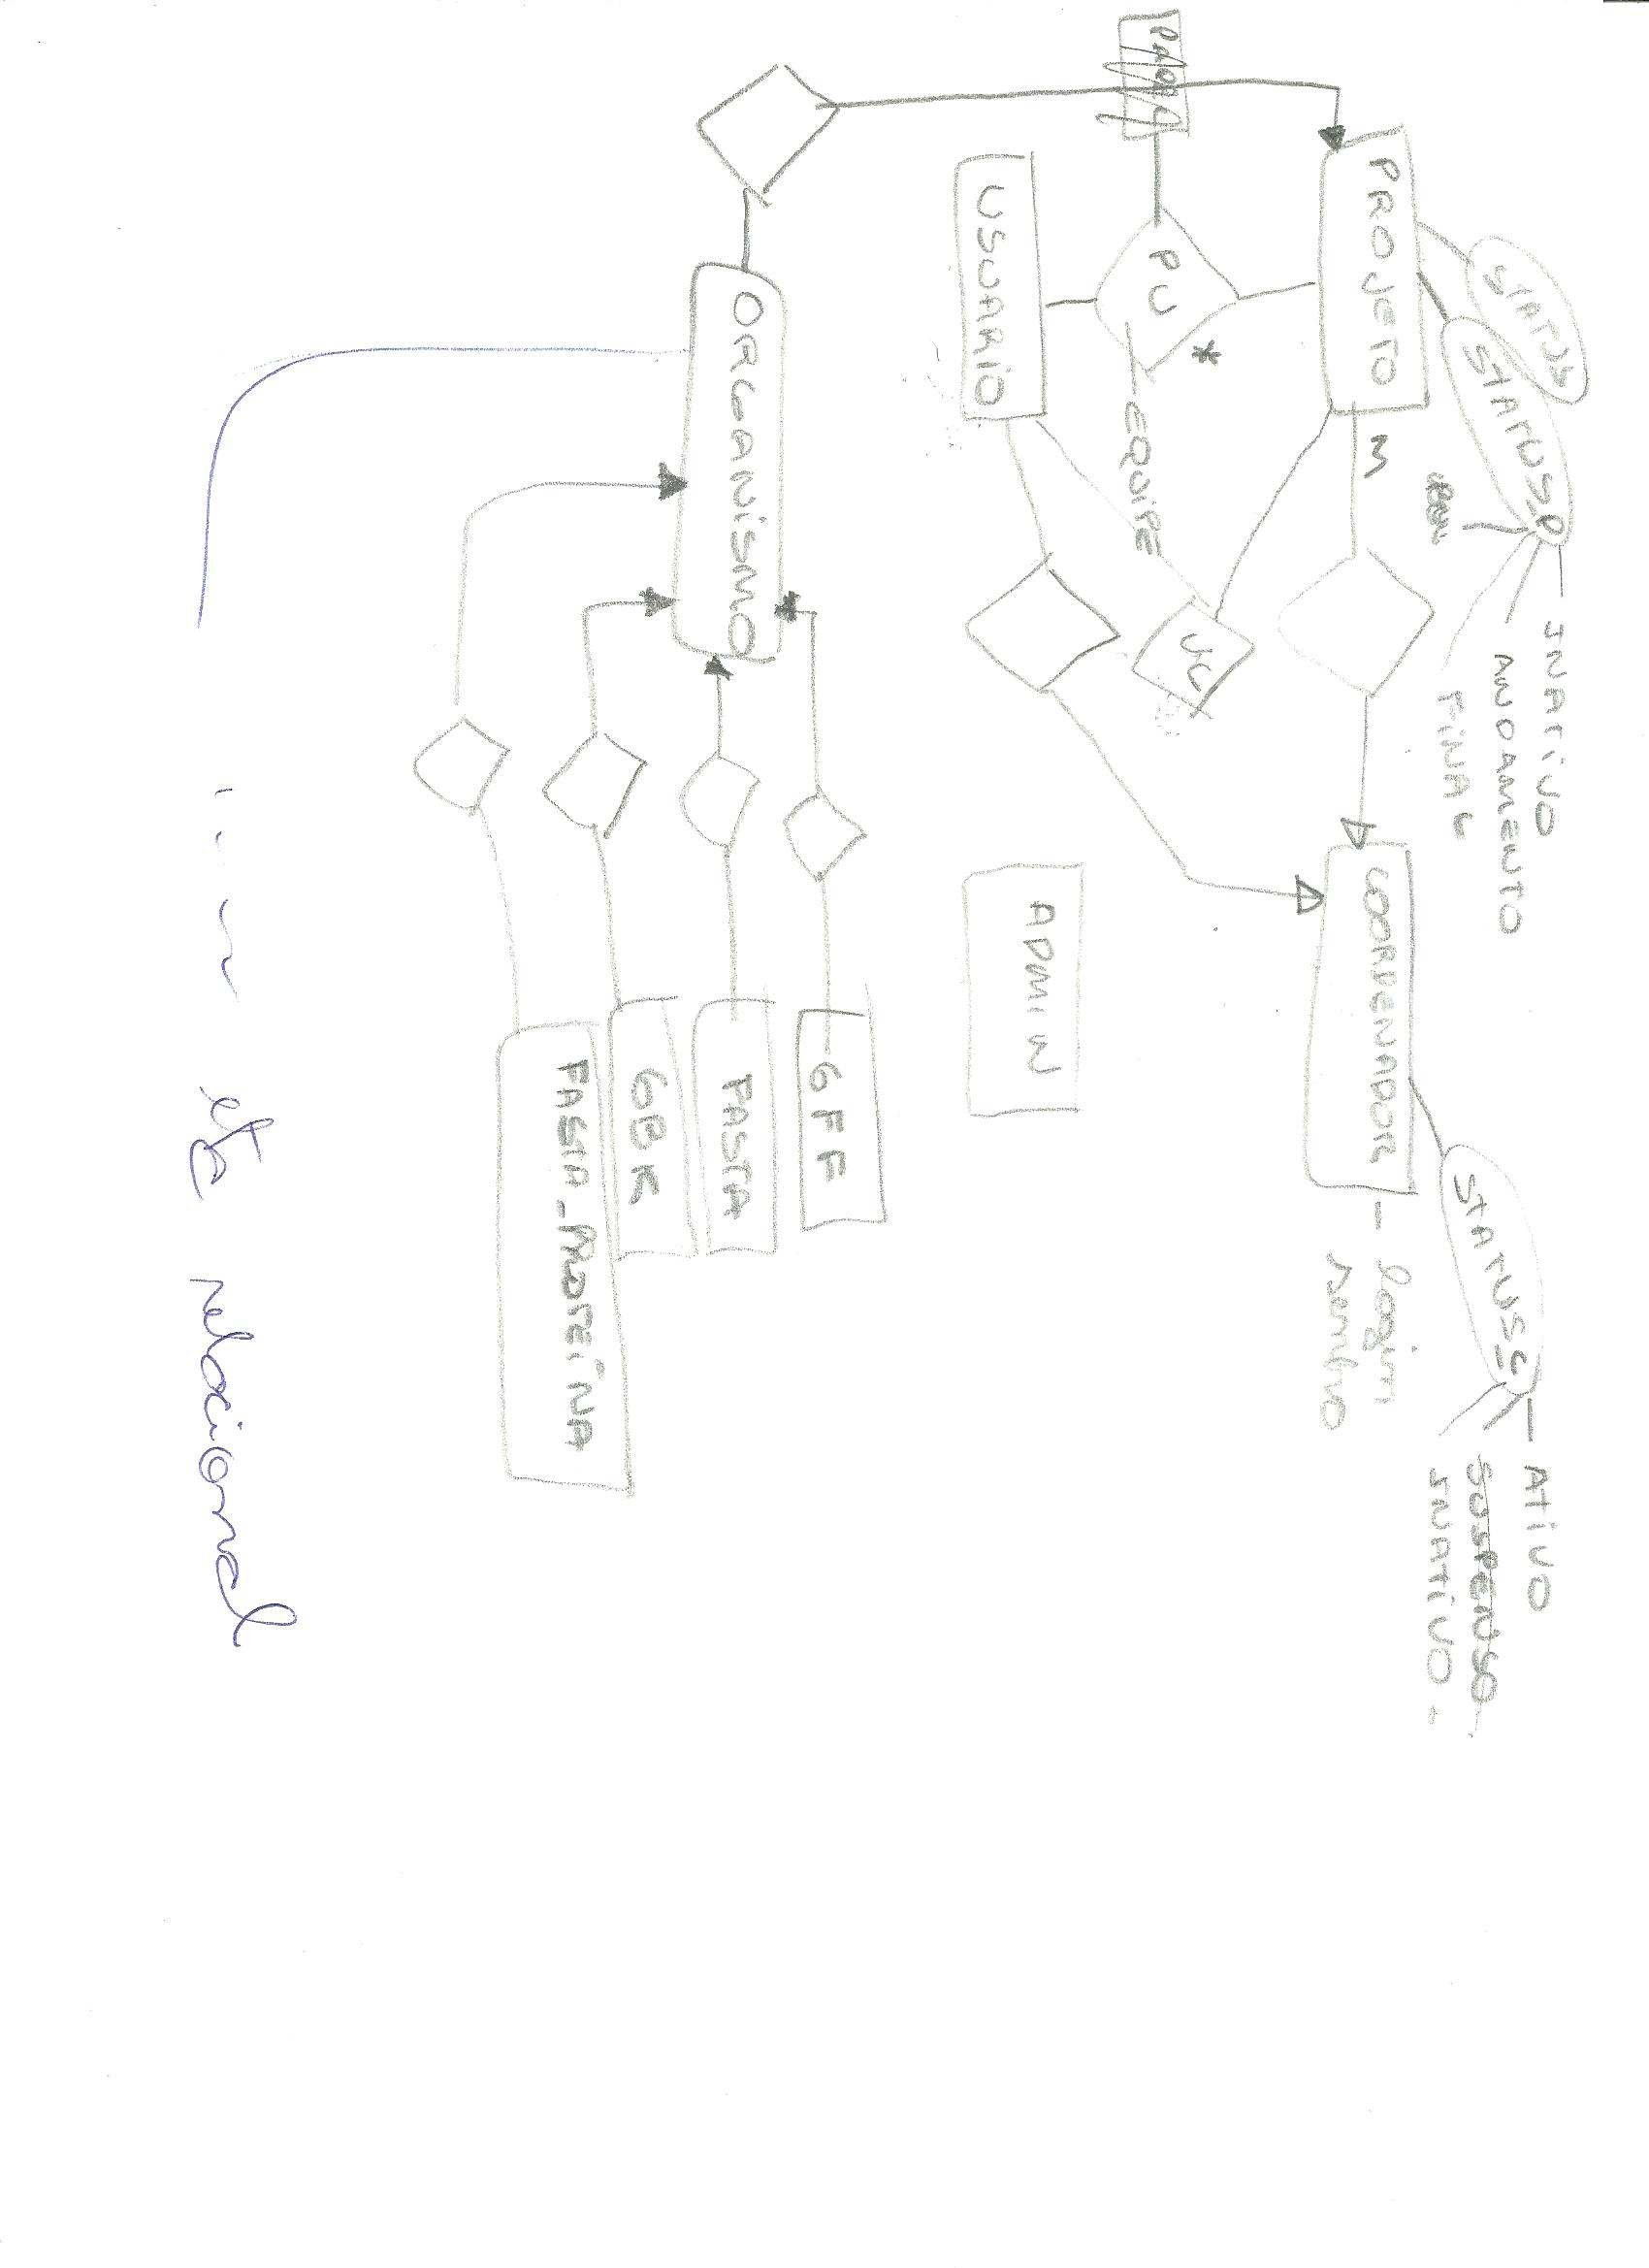 STATUS
STATUSP
INATIVO
ANDAMENTO
FINAL
STATUSC
ATIVO
SUSPENSO
INATIVO
PROJETO
M
COORDENADOR
- login
PU
*
EQUIPE
UC
USUARIO
ADMIN
GFF
ORGANISMO
FASTA
GBK
FASTA_PROTEINA
etc relacional